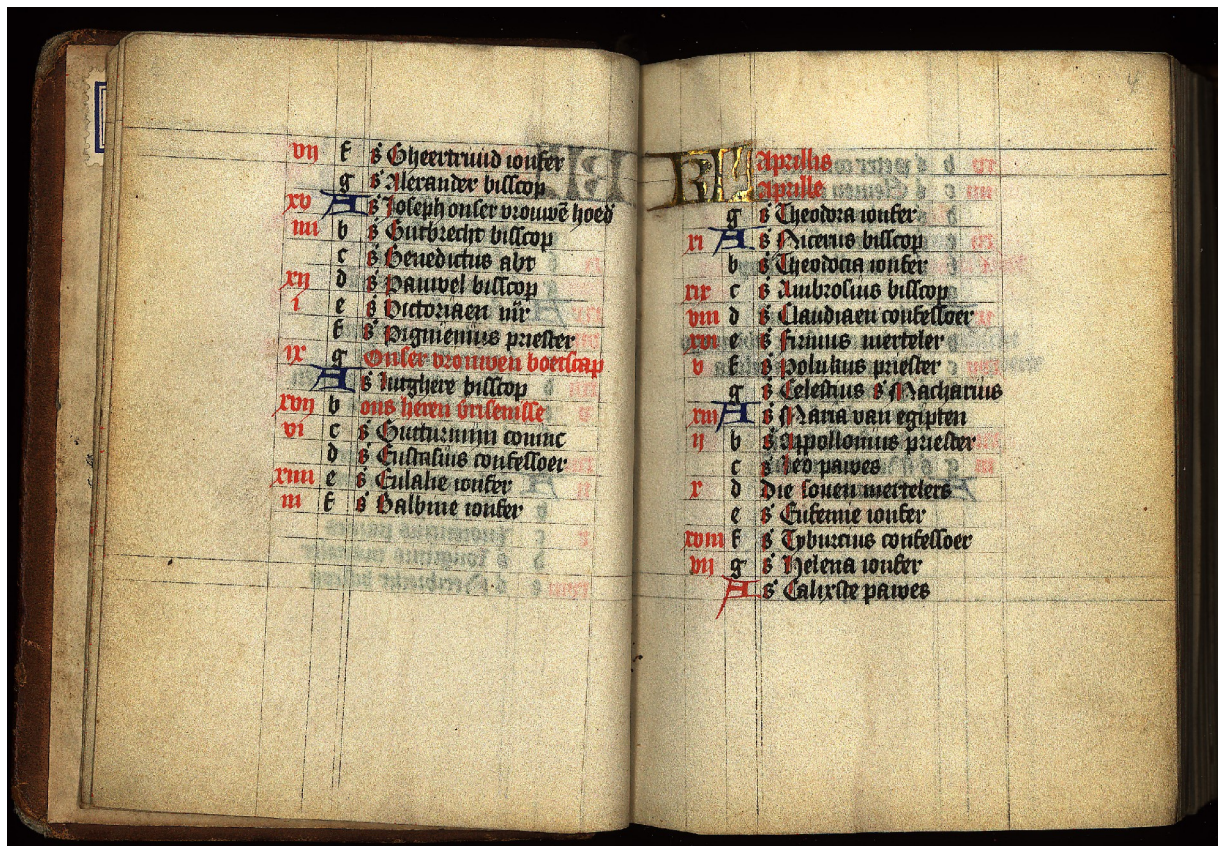 vij f s Gheertruud ioufer
g s Alexander bisscop
xv A s Joseph onser vrouwē hoed
iiij b s Gutbrecht bisscop
c s Benedictus abt
xij d s Pauwel bisscop
i e s Victoriaen mr
f s Pigmenius priester
ix g Onser vrouwen boetscap
A s lutghere bisscop
xvij b ons heren verisenisse
vi c s Gutturnum coninc
d s Eustasius confessoer
xiiij e s Eulalie ioufer
iij f s Balbine ioufer
KL Aprilis
Aprille
g s Theodora ioufer
xi A s Nicetus bisscop
b s Theodocia ioufer
xix c s Ambrosius bisscop
viij d s Claudiaen confessoer
xvi e s Firmus merteler
v f s Polukus priester
g s Celestius s Macharius
xiij A s Maria van egipten
ij b s Appollonius priester
c s Leo pawes
x d Die souen mertelers
e s Eufemie ioufer
xviij f s Tyburcius confessoer
vij g s Helena ioufer
A s Calixste pawes